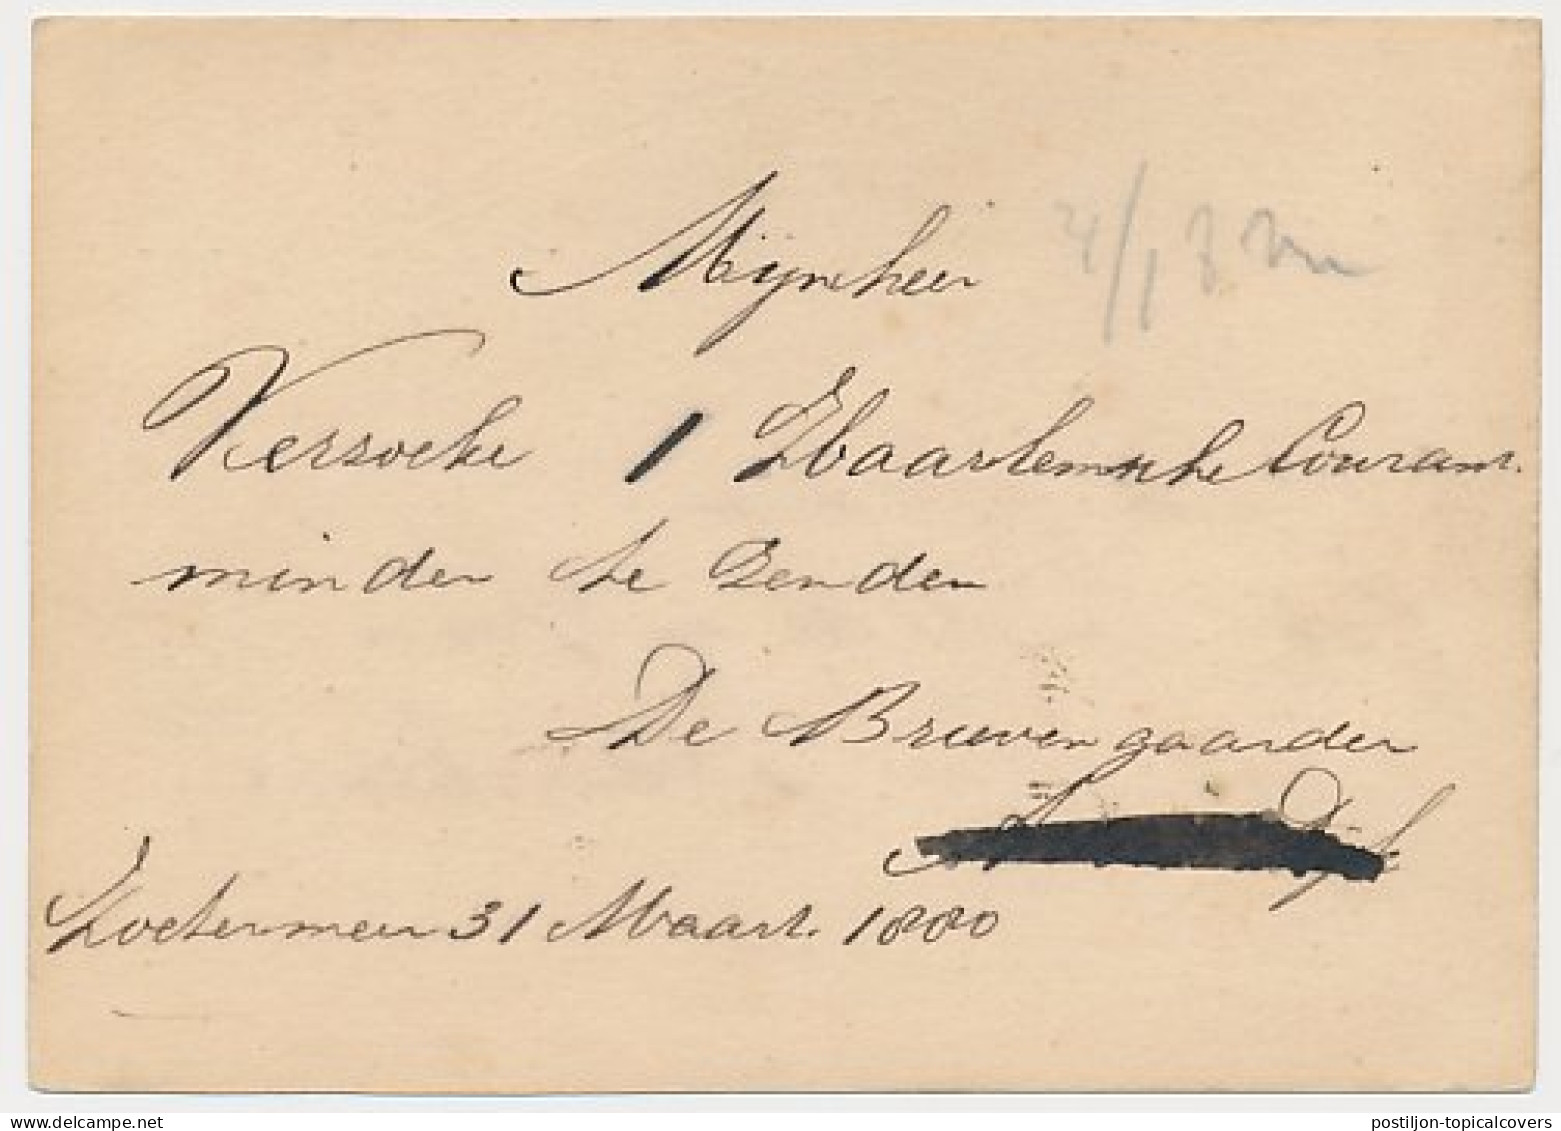 Mijnheer
Verzoeke 1 Haarlemsche Courant
minder te zenden
De Brievengaarder
Zoetermeer 31 Maart. 1880
delcampe.net
postiljon-topicalcovers